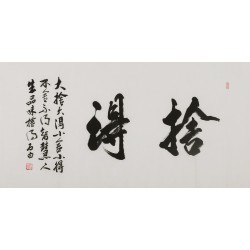 捨得
大捨大得小舍小得
不舍不得智慧人
生品味捨得